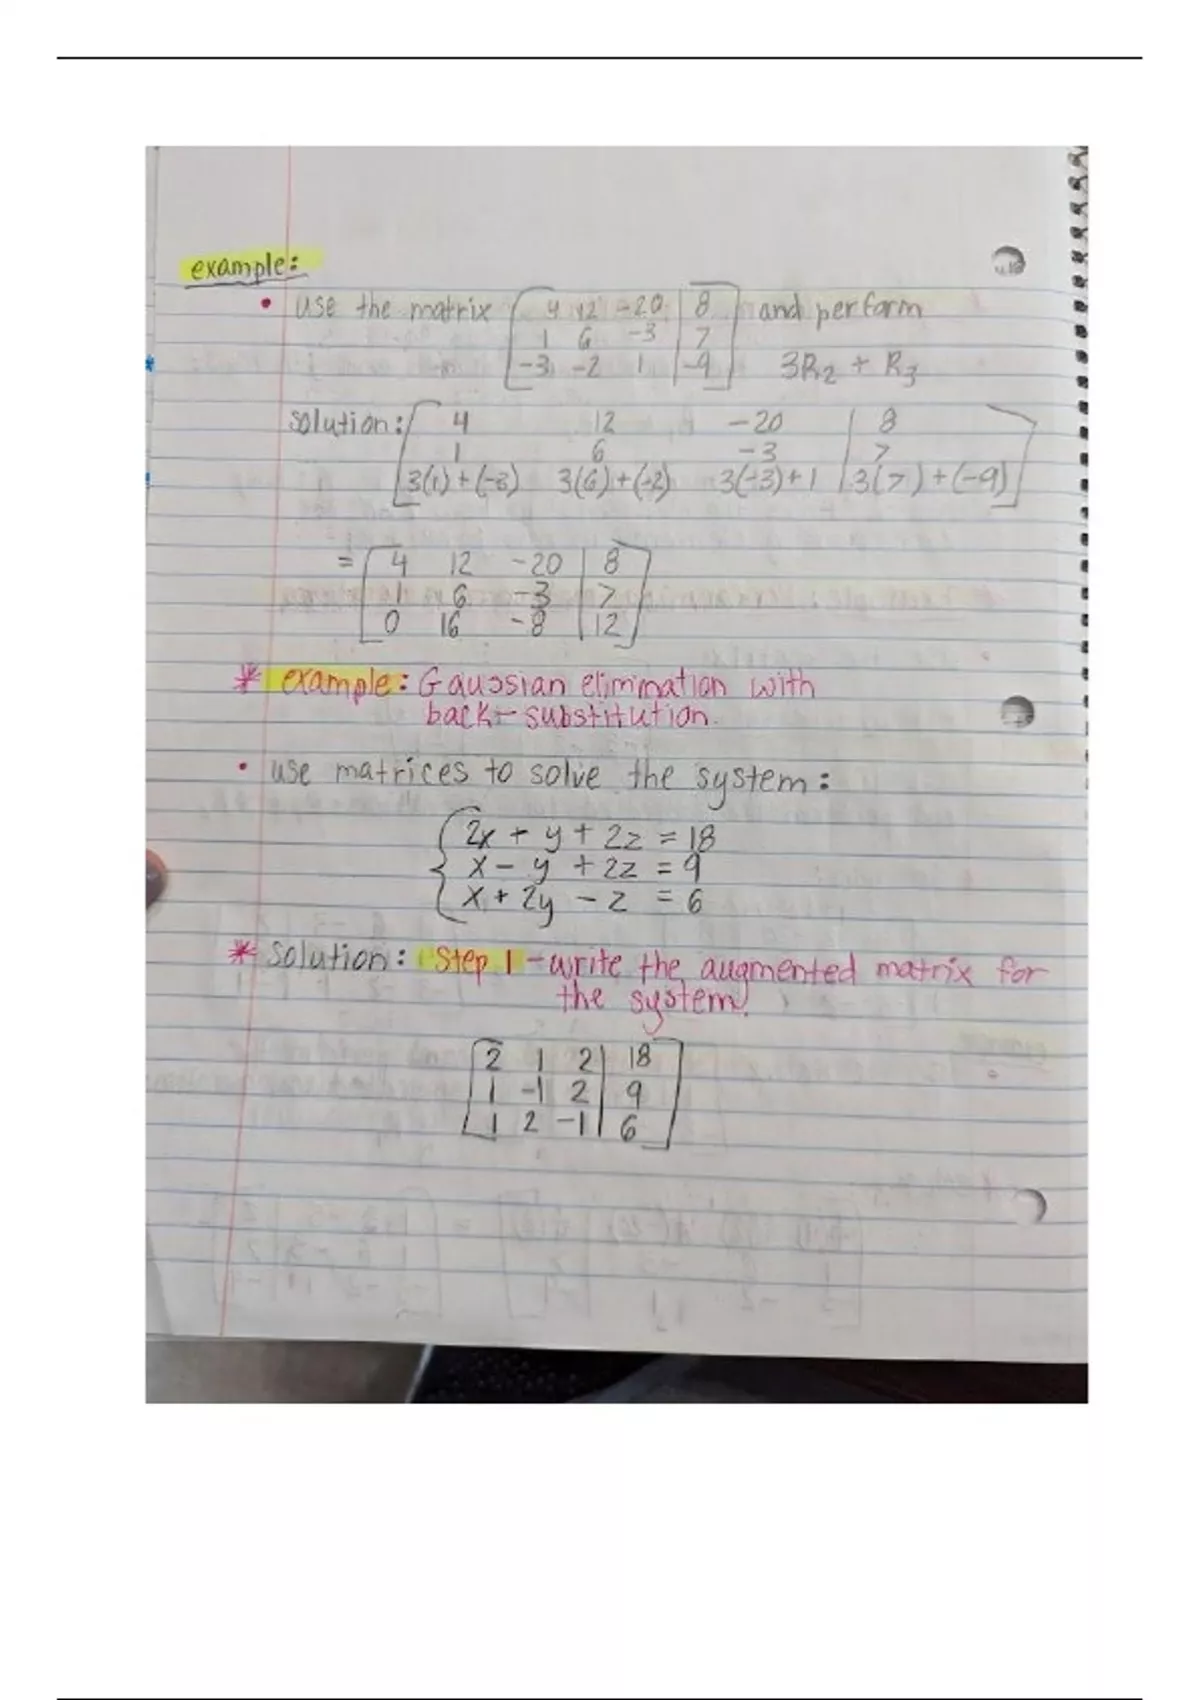 example:
• use the matrix [ 4 12 -20 | 8 ] and perform
1 6 -3 | 7
-3 -2 1 | -9 3R2 + R3
solution: [ 4 12 -20 | 8
1 6 -3 | 7
3(1)+(-3) 3(6)+(-2) 3(-3)+1 | 3(7)+(-9) ]
= [ 4 12 -20 | 8
1 6 -3 | 7
0 16 -8 | 12 ]
* example: Gaussian elimination with
back-substitution.
• use matrices to solve the system:
2x + y + 2z = 18
x - y + 2z = 9
x + 2y - z = 6
* Solution: Step 1 - write the augmented matrix for
the system.
[ 2 1 2 | 18
1 -1 2 | 9
1 2 -1 | 6 ]